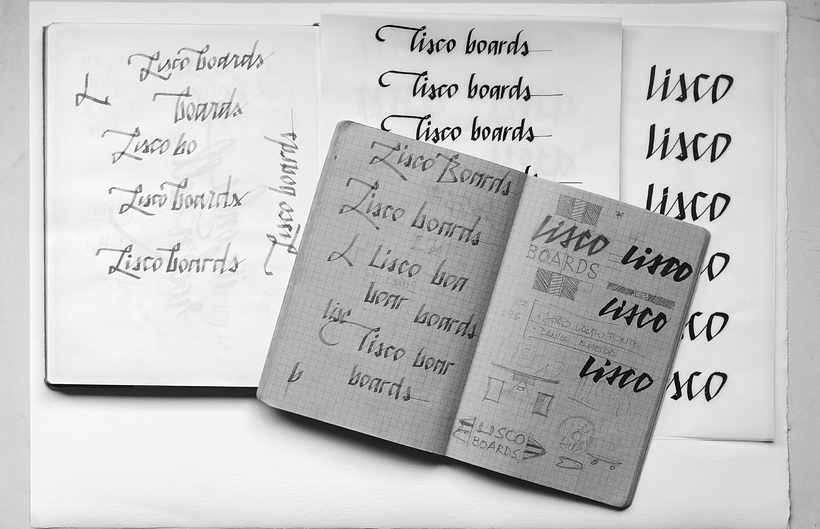 Lisco boards
L
boards
Lisco bo
Lisco boards
Lisco boards
Lisco boards
Lisco boards
Lisco boards
Lisco boards
Lisco Boards
Lisco boards
L Lisco boa
boar boards
lisc
Lisco boar
b boards
*
lisco
BOARDS
lisco
lisco
lisco
LISCO
BOARDS
lisco
lisco
lisco
o
co
sco